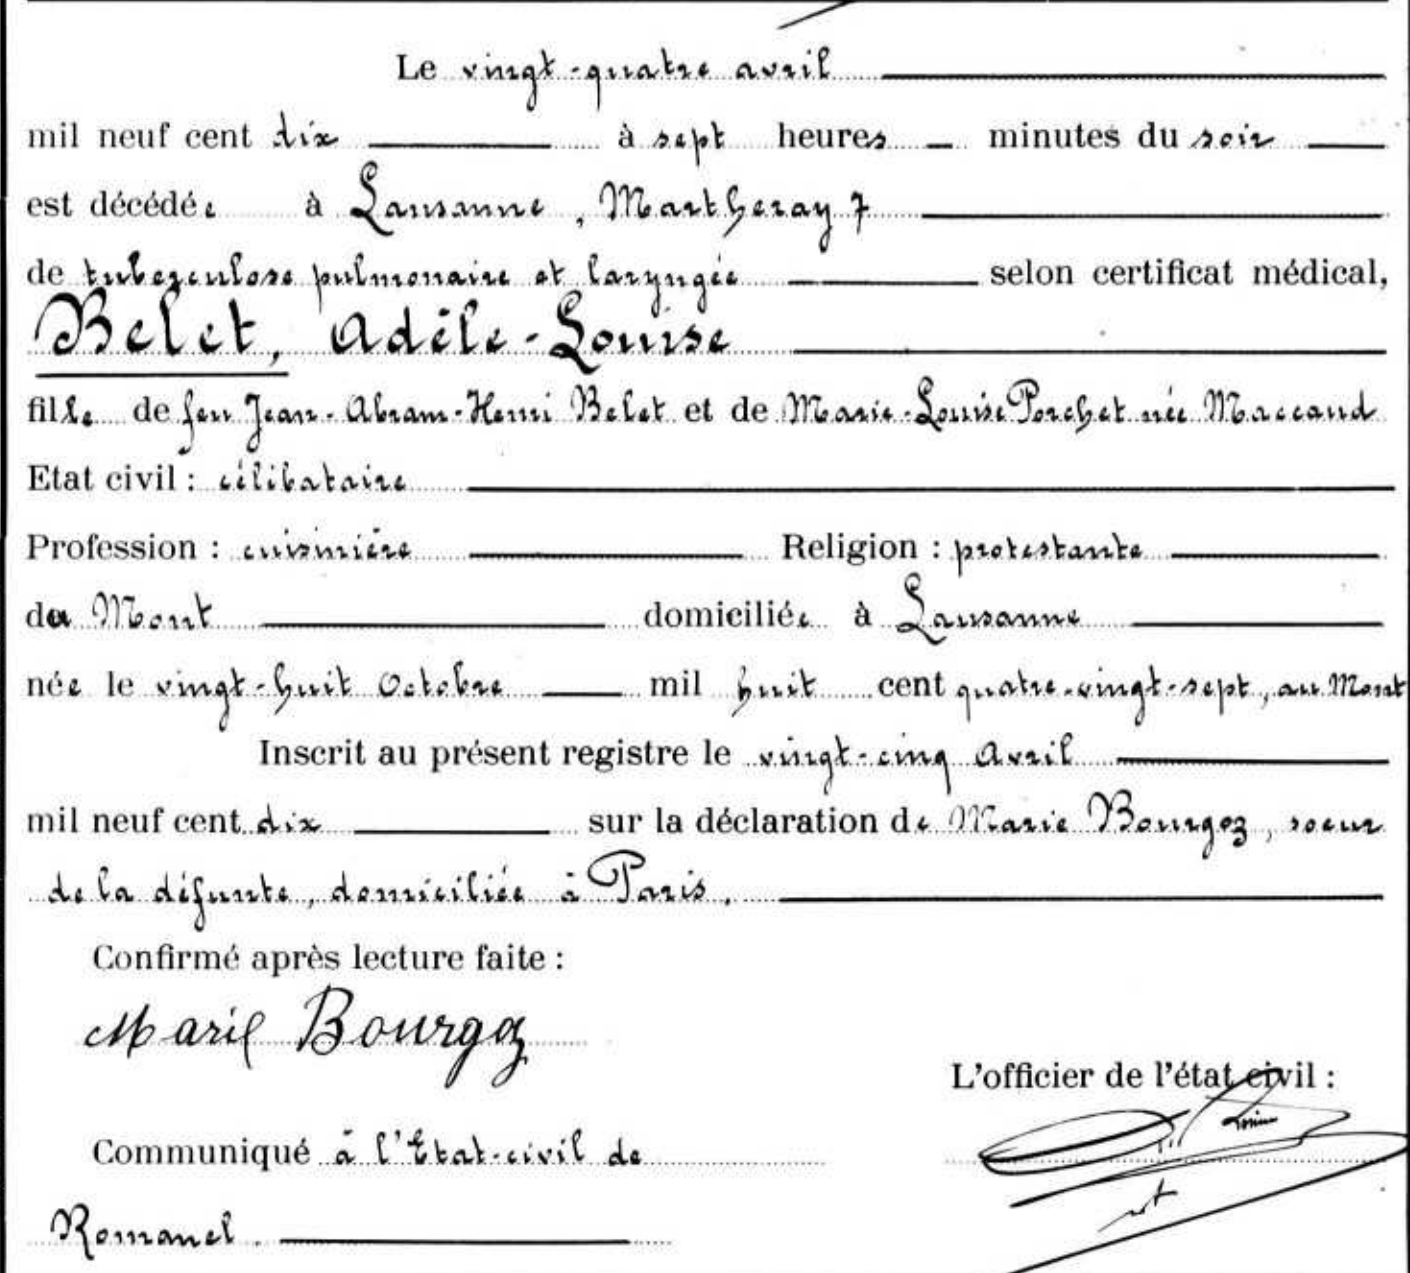 Le vingt-quatre avril
mil neuf cent dix à sept heures minutes du soir
est décédée à Lausanne, Martheray 7
de tuberculose pulmonaire et laryngée selon certificat médical,
Belet, Adèle-Louise
fille de feu Jean-Abram-Henri Belet et de Marie-Louise Porchet née Maccaud
Etat civil : célibataire
Profession : cuisinière Religion : protestante
du Mont domiciliée à Lausanne
née le vingt-huit Octobre mil huit cent quatre-vingt-sept, au Mont
Inscrit au présent registre le vingt-cinq Avril
mil neuf cent dix sur la déclaration de Marie Bourgoz, soeur
de la défunte, domiciliée à Paris.
Confirmé après lecture faite :
Marie Bourgoz
L'officier de l'état civil :
Communiqué à l'Etat-civil de
Romanel.